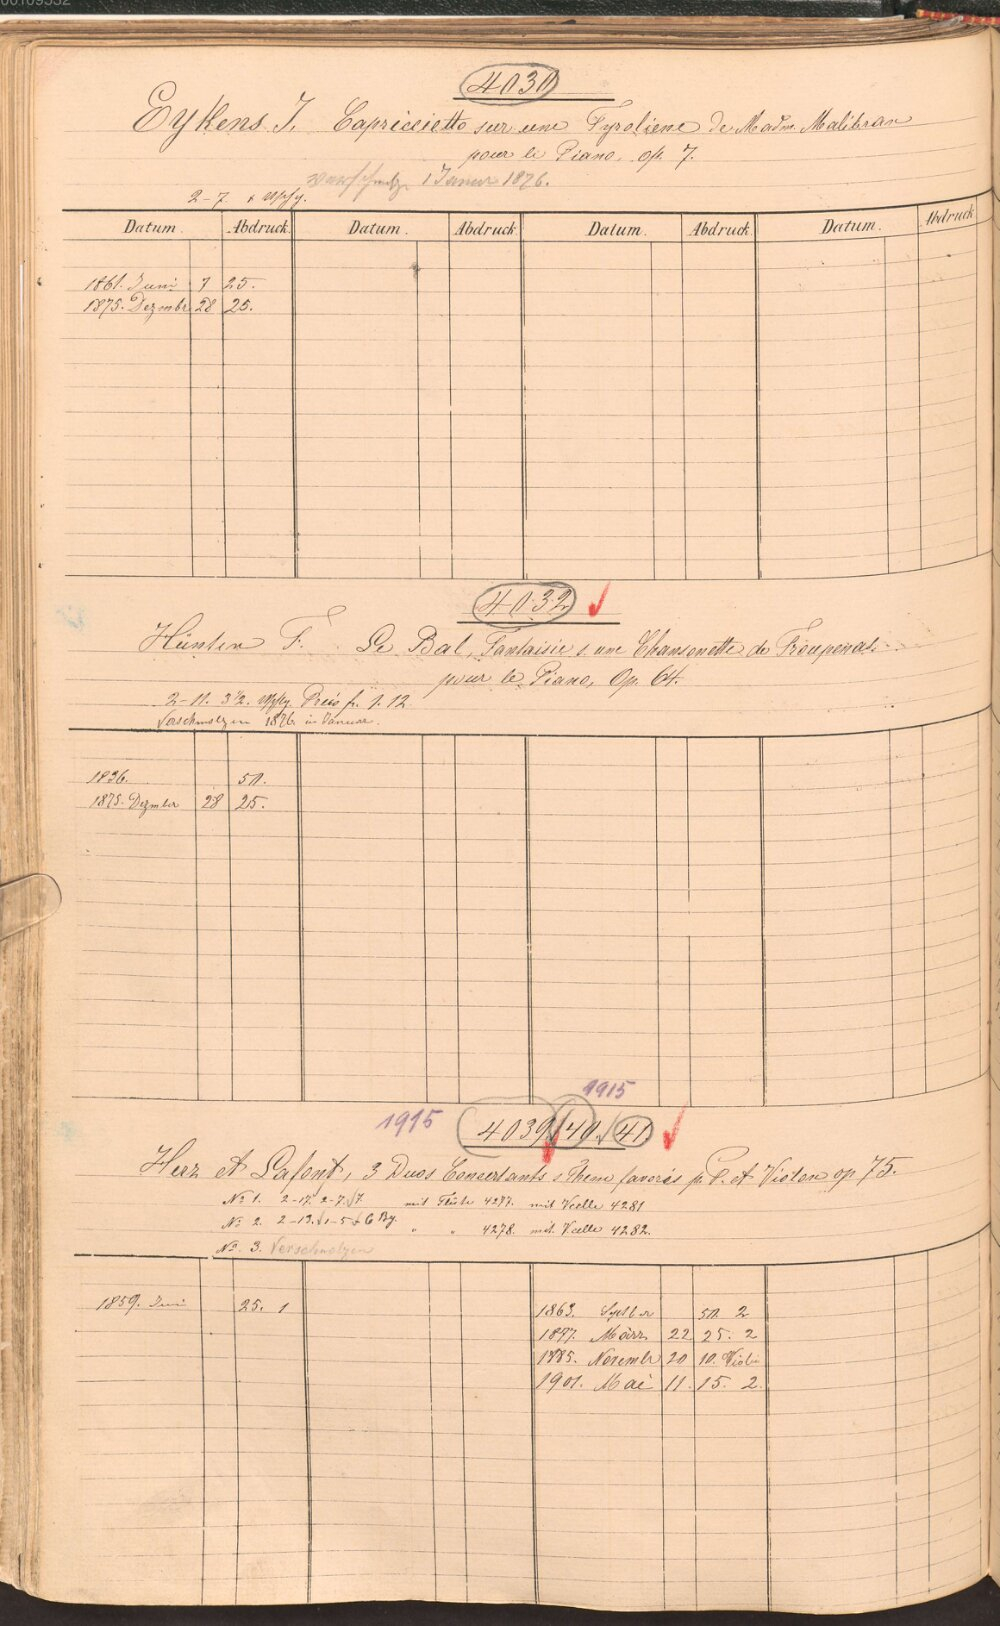 00109532
4030
Eykens J. Capriccietto sur une Tyroliene de Madm. Malibran
pour le Piano. op. 7.
1 Januar 1876.
2-7.
Datum. Abdruck. Datum. Abdruck Datum. Abdruck Datum. Abdruck
1861. Juni 7 25.
1875. Dezmbr 28 25.
4032
Hünten F. Le Bal, Fantaisie s. une Chansonette de Troupenas.
pour le Piano, Op. 64.
2-11. 3½. Preis fr. 1.12
Verschmolzen 1876 in Januar.
1836. 50.
1875. Dezmber 28 25.
1915
1915 4039/40./41
Herz et Lafont, 3 Duos Concertants s Theme favoris p. P. et Violon op 75.
No 1. 2-17. 2-7. mit Flute 4277. mit Vcelle 4281
No 2. 2-13. 1-5 " " 4278. mit Vcelle 4282.
No. 3. Verschmolzen
1859. Juni 25. 1 1863. Septbr 50 2
1877. März 22 25. 2
1885. Novembr 20 10. Violin
1901. Mai 11. 15. 2.